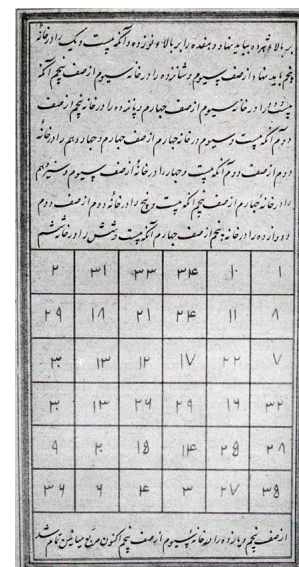 بر بالاء هژده بباید نهاد و هفده را بر بالاء نوزده و آنگه بیست و یک را در خانهٔ
پنجم باید نهاد از صف سیوم و شانزده را در خانه سیوم از صف پنجم آنگه
بیست و دو را در خانه سیوم از صف چهارم و پانزده را در خانه پنجم از صف
دوم آنگه بیست و سیوم در خانه چهارم از صف چهارم و چهاردهم را در خانهٔ
دوم از صف دوم آنگه بیست و چهار را در خانهٔ از صف سیوم و سیزدهم
را در خانه چهارم از صف پنجم آنگه بیست و پنج را در خانهٔ دوم از صف دوم
و دوازده را در خانه پنجم از صف چهارم آنگه بیست و شش را در خانه ششم
۲ ۳۱ ۳۳ ۳۴ ۱۰ ۱
۲۹ ۱۸ ۲۱ ۲۴ ۱۱ ۸
۳۰ ۱۳ ۱۲ ۱۷ ۲۲ ۷
۳۰ ۱۳ ۲۶ ۲۹ ۱۶ ۳۲
۹ ۲۰ ۱۵ ۱۴ ۲۵ ۲۸
۳۶ ۶ ۴ ۳ ۲۷ ۳۵
از صف پنجم و یازده را در خانه سیوم از صف پنجم اکنون مربع میانین تمام شد